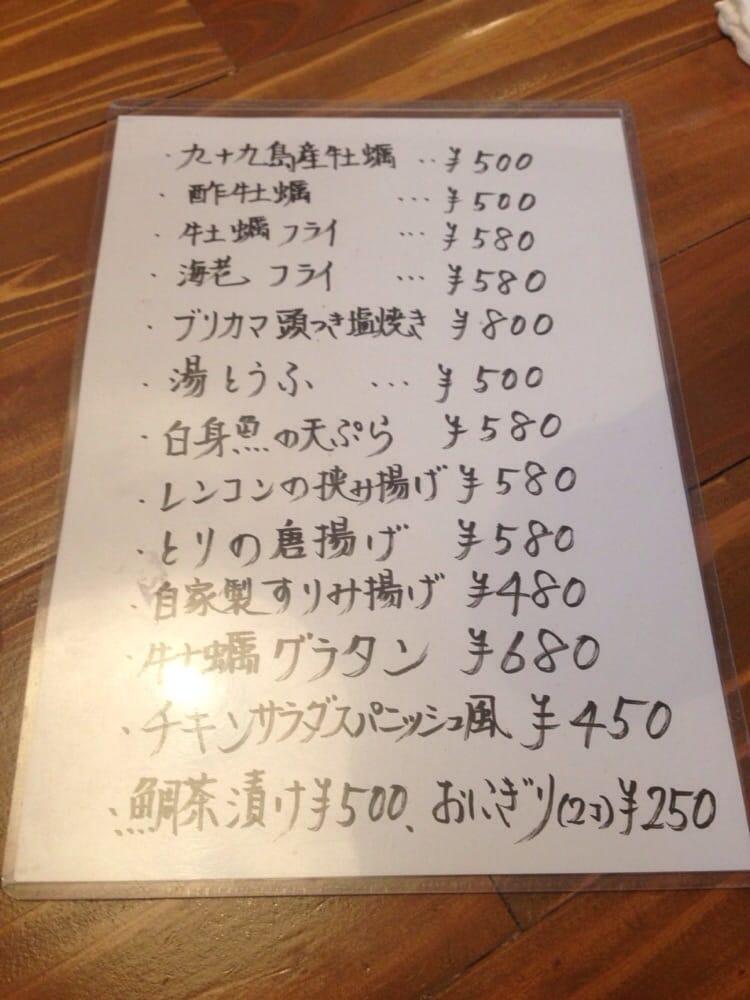 ・九十九島産牡蠣 ‥¥500
・酢牡蠣 …¥500
・牡蠣フライ …¥580
・海老フライ …¥580
・ブリカマ頭つき塩焼き ¥800
・湯とうふ …¥500
・白身魚の天ぷら ¥580
・レンコンの挟み揚げ ¥580
・とりの唐揚げ ¥580
・自家製すりみ揚げ ¥480
・牡蠣グラタン ¥680
・チキンサラダスパニッシュ風 ¥450
・鯛茶漬け¥500、おにぎり(2コ)¥250